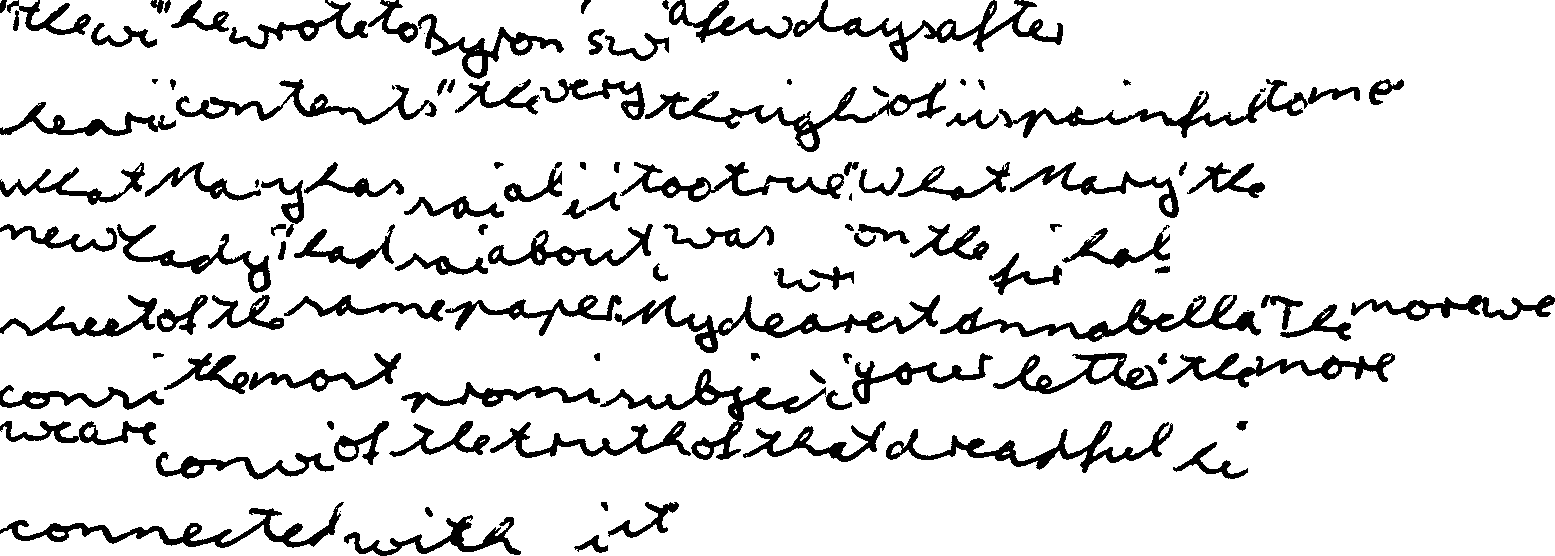 "the wi" he wrote to Byron's wi a few days after
heari contents "the very though of i is painful to me
what Mary has sai al i i too true" What Mary the
new Lady had sai about i was wr on the fir hal
sheet of the same paper: My dearest Annabella "The more we
consi the most promi subjec i your letter the more
we are convi of the truth of that dreadful hi
connected with it